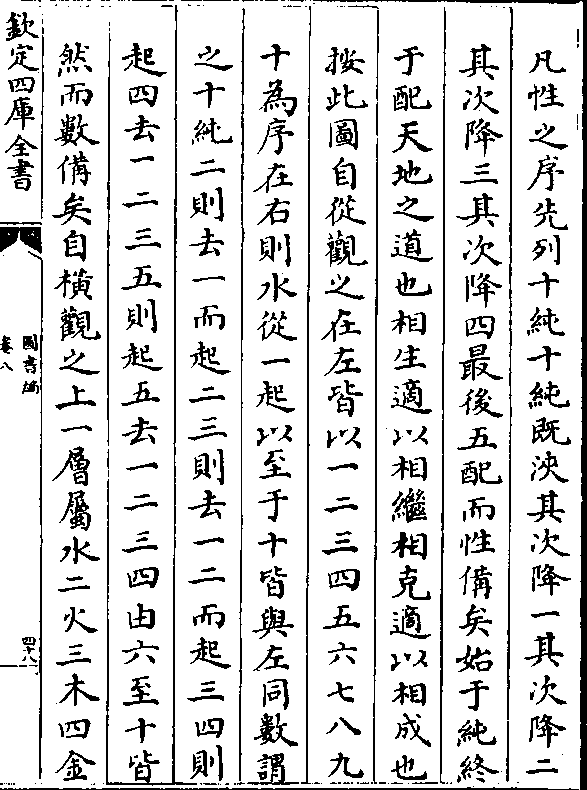 凡性之序先列十純十純既浹其次降一其次降二
其次降三其次降四最後五配而性備矣始于純終
于配天地之道也相生適以相繼相克適以相成也
按此圖自從觀之在左皆以一二三四五六七八九
十為序在右則水從一起以至于十皆與左同數謂
之十純二則去一而起二三則去一二而起三四則
起四去一二三五則起五去一二三四由六至十皆
然而數備矣自橫觀之上一層屬水二火三木四金
欽定四庫全書
圖書編
卷八
四十八